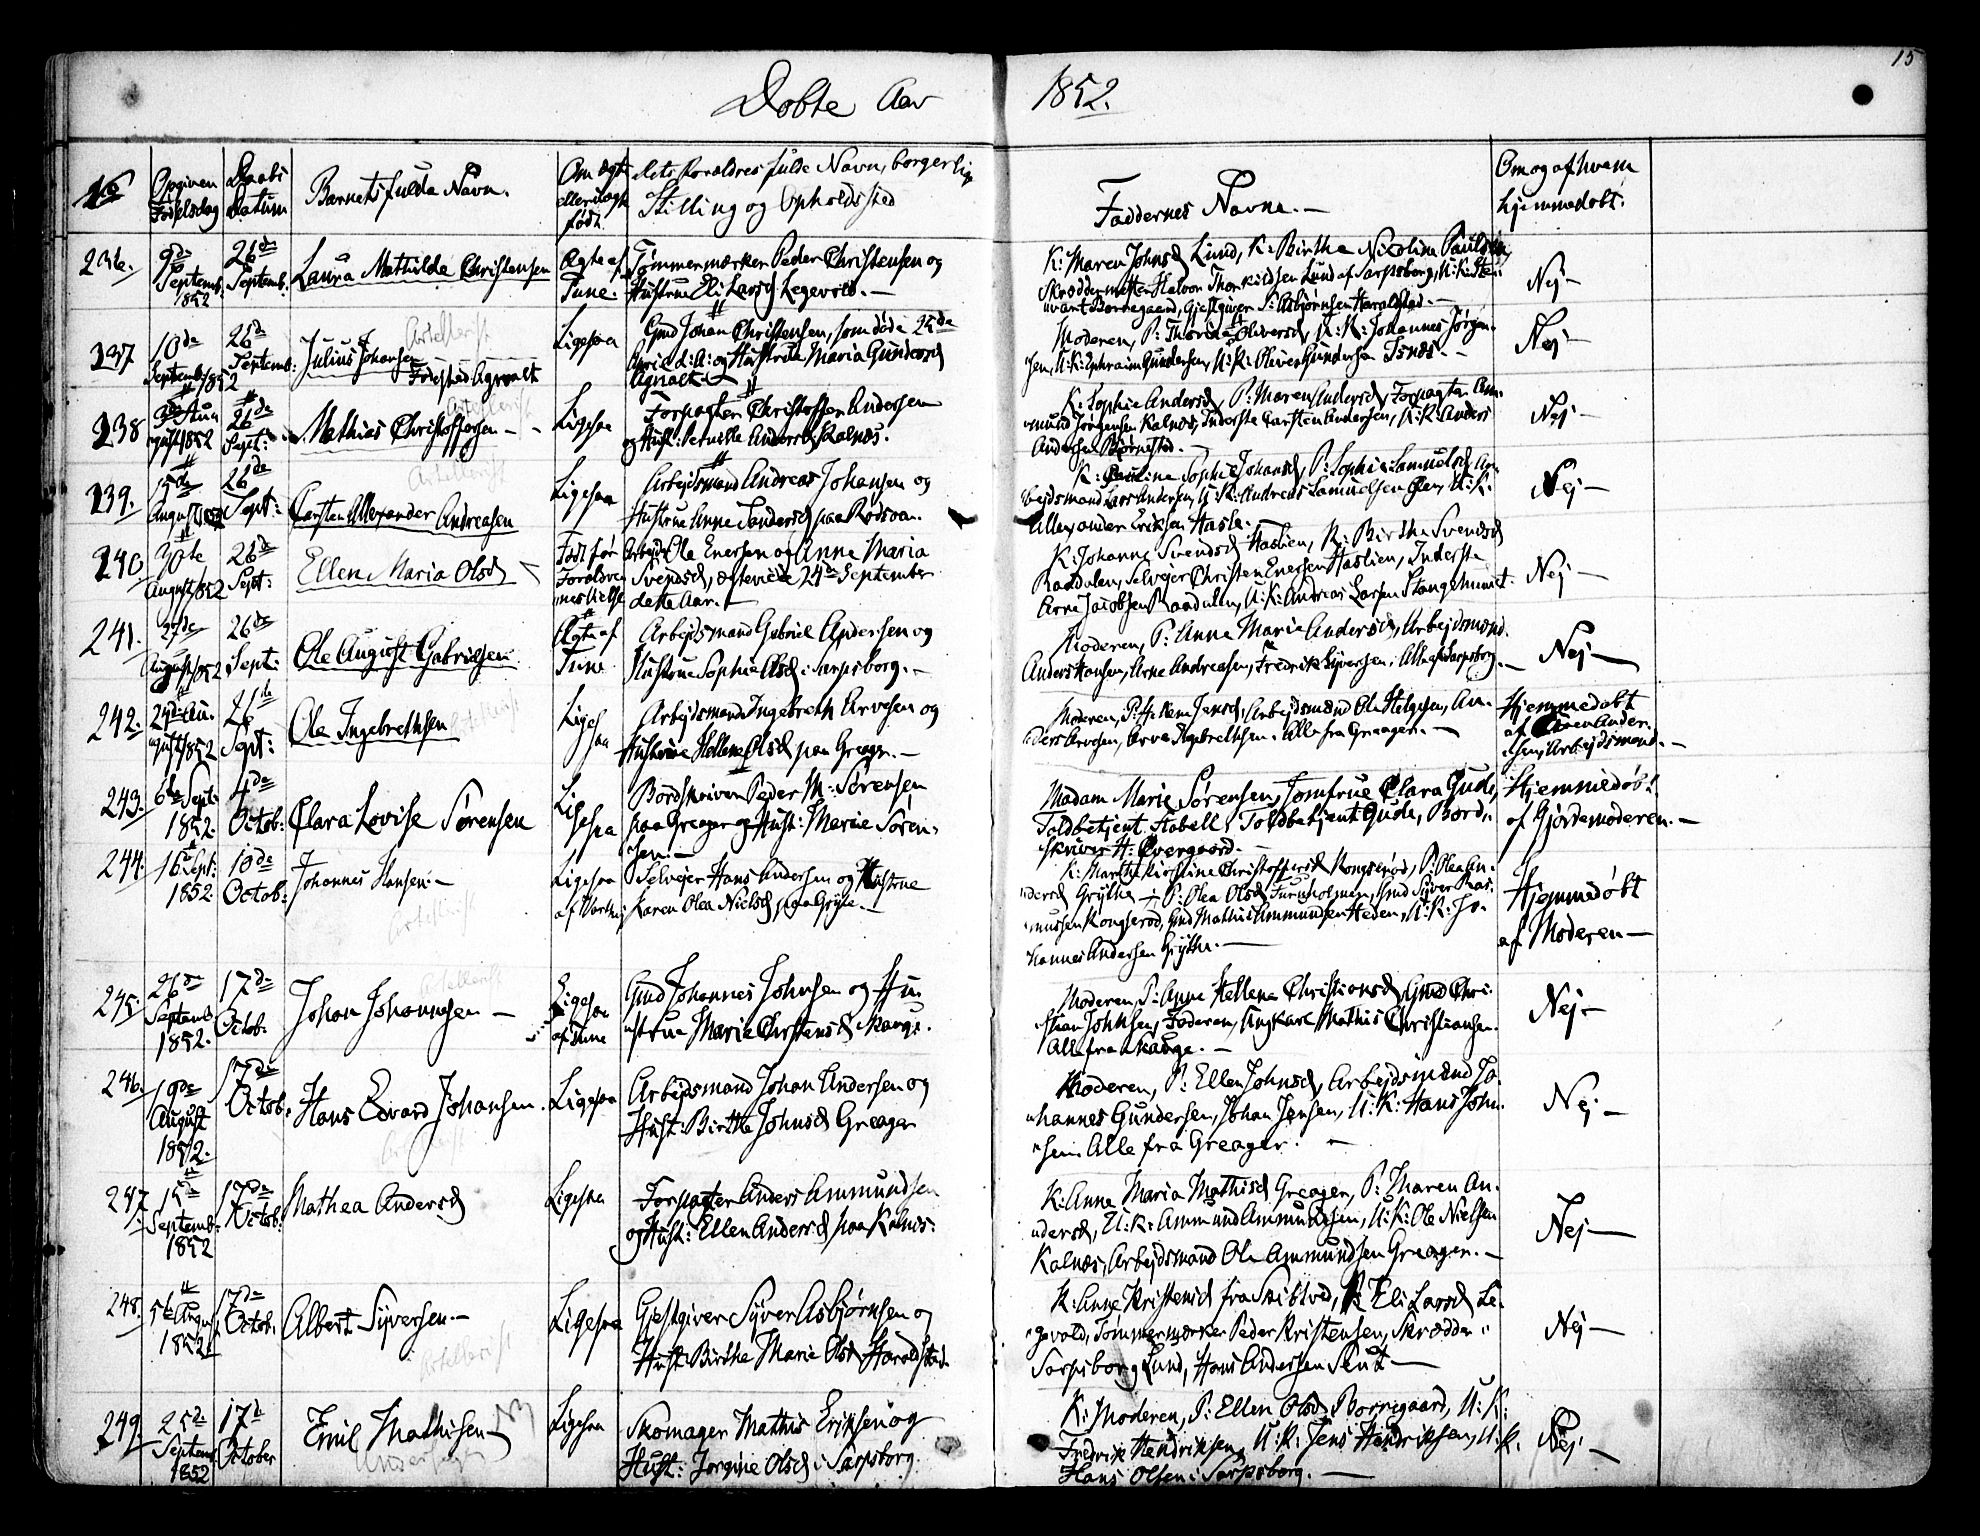 15
Døbte Aar 1852.
Opgiven Fødelsdag
Daabs Datum
Barnets fulde Navn.
Om ægte eller uægte født.
dets Forældres fulde Navn, borgerlig
Stilling og Opholdssted
Faddernes Navne. —
Om og af hvem
hjemmedøbt.
236.
9de Septemb. 1852
26de Septemb.
Laura Mathilde Christensen
Ægte af Tune.
Tømmermærker Peder Christensen og
Hustrue Eli Larsd Legevold. —
K: Maren Johnsd Lund, K: Birthe Nicoline Paulsen,
Skræddermester Halvor Thorkildsen Lund af Sarpsborg, U: K:
Borregaard, Gjestgiver S: Asbjørnsen Haralstad. —
Nej —
237
10de Septemb 1852
26de Septemb:
Julius Johansen
Fødested Agnalt
Ligesaa
Gmd Johan Christensen, som døde 25de
d: A: og Hustrue Maria Gundersd
Agnalt. —
Moderen, P: Thorine Oliversd, U: K: Johannes Jørgen-
sen, U: K: Ephraim Gundersen, U: K: Oliver Gundersen Isnæs. —
Nej —
238
August 1852
26de Sept:
Mathias Christoffersen —
Ligesaa
Forpagter Christoffer Andersen
og Hust: Pernille Andersd, Kalnæs.
K: Sophie Andersd, P: Maren Andersd, Forpagter Am-
mund Jørgensen Kalnæs, Inderste Carsten Andersen, U: K: Anders
Andersen Bjørnstad. —
Nej —
239.
15de August 1852
26de Sept:
Carsten Allexander Andreasen
Ligesaa
Arbejdsmand Andreas Johansen og
Hustrue Anne Sandersd paa Rødsaa.
K: Pauline Sophie Johansd, P: Sophie Samuelsd, Ar-
bejdsmand Lars Andersen, U: K: Andreas Samuelsen, U: K:
Allexander Eriksen Hasle. —
Nej —
240
30te August 1852
26de Sept:
Ellen Maria Olsd
Født før Forældrenes Vielse
Arbejdsm Ole Enersen og Anne Maria
Svendsd, ægteviede 24de September
dette Aar. —
K: Johanne Svendsd Haslien, K: Birthe Svendsd
Raadalen, Selvejer Christen Enersen Haslien, Inderste
Arne Jacobsen Raadalen, U: K: Andreas Larsen Stangehunet.
Nej —
241.
27de August 1852
26de Sept:
Ole August Gabrielsen
Ægte af Tune
Arbejdsmand Gabriel Andersen og
Hustrue Sophie Olsd i Sarpsborg. —
Moderen, P: Anne Marie Andersd, Arbejdsmænd
Anders Hansen, Arne Andreasen, Fredrik Syversen, Alle af Sarpsborg. —
Nej —
242.
24de August 1852
26de Sept:
Ole Ingebrethsen
Ligesaa
Arbejdsmand Ingebreth Arvesen og
Hustrue Hellene Olsd paa Greager. —
Moderen, P: Jensd, Arbejdsmænd Ole Helgesen, An-
ders Arvesen, Arve Ingebrethsen. Alle fra Greager. —
Hjemmedøbt
af Ander-
sen, Arbejdsmand. —
243.
6te Sept: 1852.
4de Octob:
Clara Lovise Sørensen
Ligesaa
Bordskriver Peder M. Sørensen
paa Greager og Hust: Marie Søren-
sen. —
Madam Marie Sørensen, Jomfrue Clara Gude,
Toldbetjent Stabell, Toldbetjent Gude, Bord-
skriver H: Overgaard. —
Hjemmedøbt
af Gjordemoderen. —
244.
16 Sept: 1852.
10de Octob:
Johannes Hansen. —
Ligesaa
Selvejer Hans Andersen og Hustrue
Karen Olea Nielsd paa Gryte. —
K: Marthe Kirstine Christoffersd Kongserød, P: Olea An-
dersd Grythe — P: Olea Olsd Furuholmen, Gmd Syver Ras-
mussen Kongserød, Gmd Mathis Ammundsen Heden, U: K: Jo-
hannes Andersen Grythe. —
Hjemmedøbt
af Moderen —
245.
26de Septemb. 1852.
17de Octob.
Johan Johannesen —
Ligesaa af Tune
Gmd Johannes Johnsen og Hu-
strue Marie Christensd Skauge.
Moderen, P: Anne Hellene Christiansd, Gmd Chri-
stian Johnsen, Faderen, Ungkarl Mathis Christiansen.
Alle fra Skauge. —
Nej —
246.
19de August 1852.
17de Octob.
Hans Edvard Johansen.
Ligesaa
Arbejdsmand Johan Andersen og
Hust: Birthe Johnsd Greager
Moderen, P: Ellen Johnsd, Arbejdsmænd Jo-
hannes Gundersen, Johan Jensen, U: K: Hans John-
sen. Alle fra Greager. —
Nej —
247.
15de Septemb. 1852
17de Octob:
Mathea Andersd
Ligesaa
Forpagter Anders Ammundsen
og Hust: Ellen Andersd paa Kalnæs.
K: Anne Maria Mathisd Greager, P: Maren An-
dersd, U: K: Ammund Ammundsen, U: K: Ole Nielsen
Kalnæs, Arbejdsmand Ole Ammundsen Greager. —
Nej —
248.
5te August 1852
17de Octob.
Albert Syversen. —
Ligesaa
Gjestgiver Syver Asbjørnsen og
Hust: Birthe Marie Olsd Haralstad.
K: Anne Kristensd fra Skiblved, P: Eli Larsd Le-
gevold, Tømmermærker Peder Kristensen, Skrædder
Sarpsborg Lund, Hans Andersen —
Nej —
249.
25de Septemb 1852
17de October
Emil Mathisen — NB
Ligesaa
Skomager Mathis Eriksen og
Hust: Jorgine Olsd i Sarpsborg.
K: Moderen, P: Ellen Olsd Borregaard, U: K:
Fredrik Hendriksen, U: K: Jens Hendriksen, U: K.
Hans Olsen i Sarpsborg. —
Nej. —